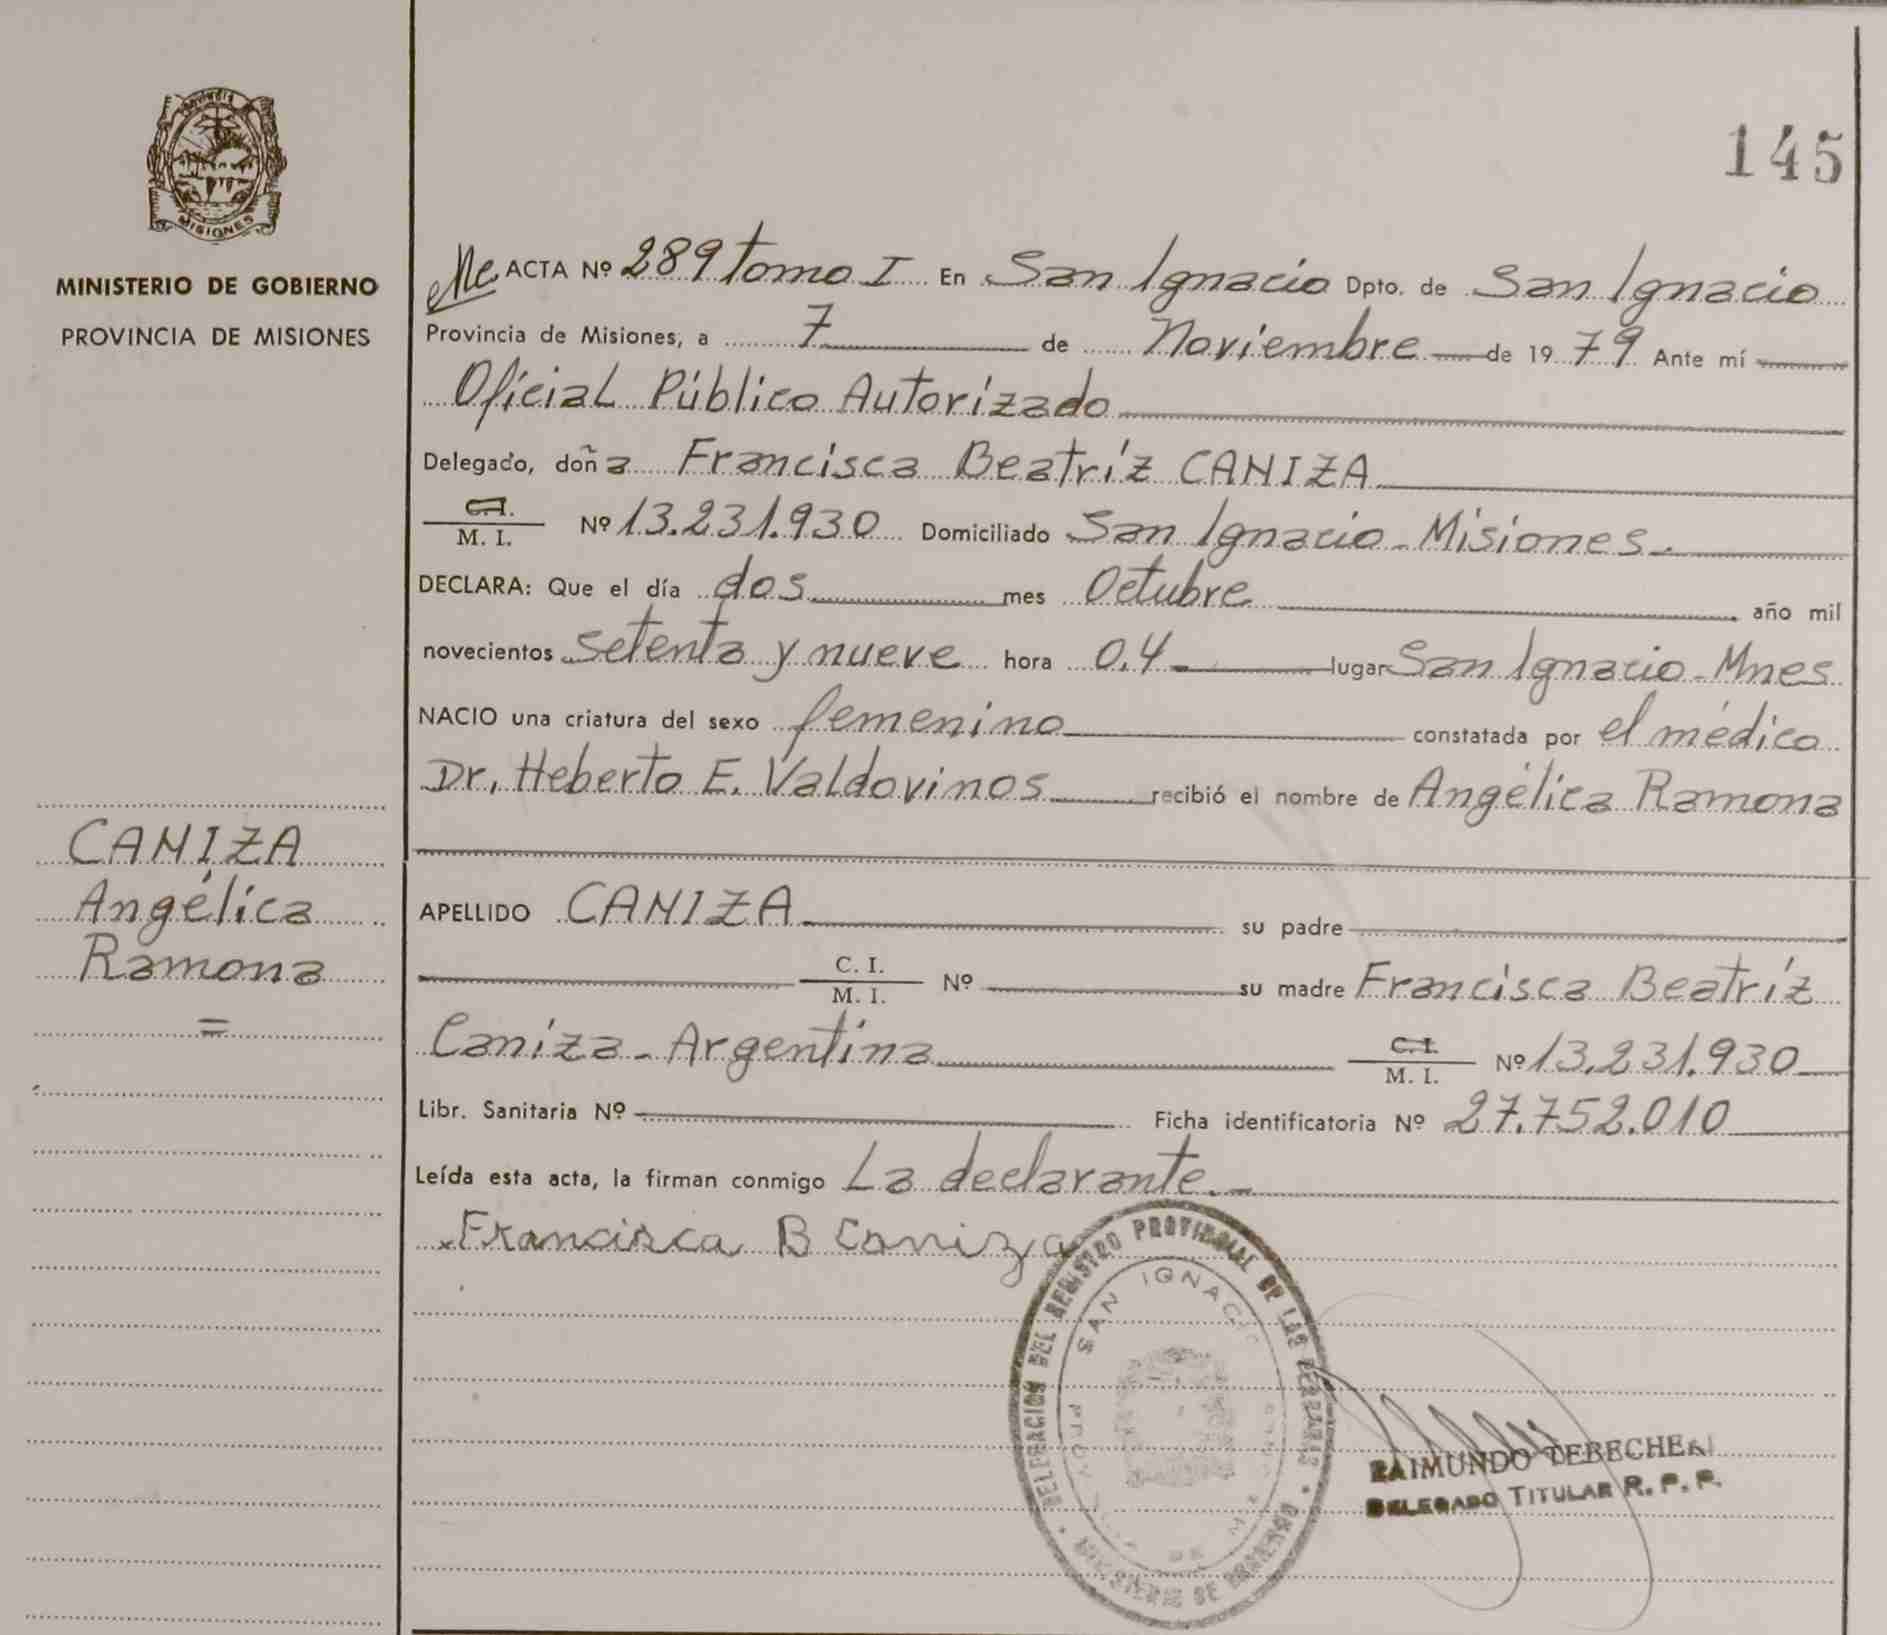 MISIONES
MINISTERIO DE GOBIERNO
PROVINCIA DE MISIONES
145
ACTA Nº 289 tomo I En San Ignacio Dpto. de San Ignacio
Provincia de Misiones, a 7 de Noviembre de 19 79 Ante mí
Oficial Público Autorizado
Delegado, doña Francisca Beatríz CANIZA
C.I. M. I. Nº 13.231.930 Domiciliado San Ignacio - Misiones.
DECLARA: Que el día dos mes Octubre año mil
novecientos setenta y nueve hora 0,4 lugar San Ignacio - Mnes
NACIO una criatura del sexo femenino constatada por el médico
Dr. Heberto E. Valdovinos recibió el nombre de Angélica Ramona
CANIZA
Angélica
Ramona
=
APELLIDO CANIZA su padre
C. I. M. I. Nº su madre Francisca Beatríz
Caniza - Argentina C.I. M. I. Nº 13.231.930
Libr. Sanitaria Nº Ficha identificatoria Nº 27.752.010
Leída esta acta, la firman conmigo La declarante.-
Francisca B Caniza
DELEGACION DEL REGISTRO PROVINCIAL DE LAS PERSONAS
SAN IGNACIO
MINISTERIO DE GOBIERNO
RAIMUNDO
DELEGADO TITULAR R. P. P.